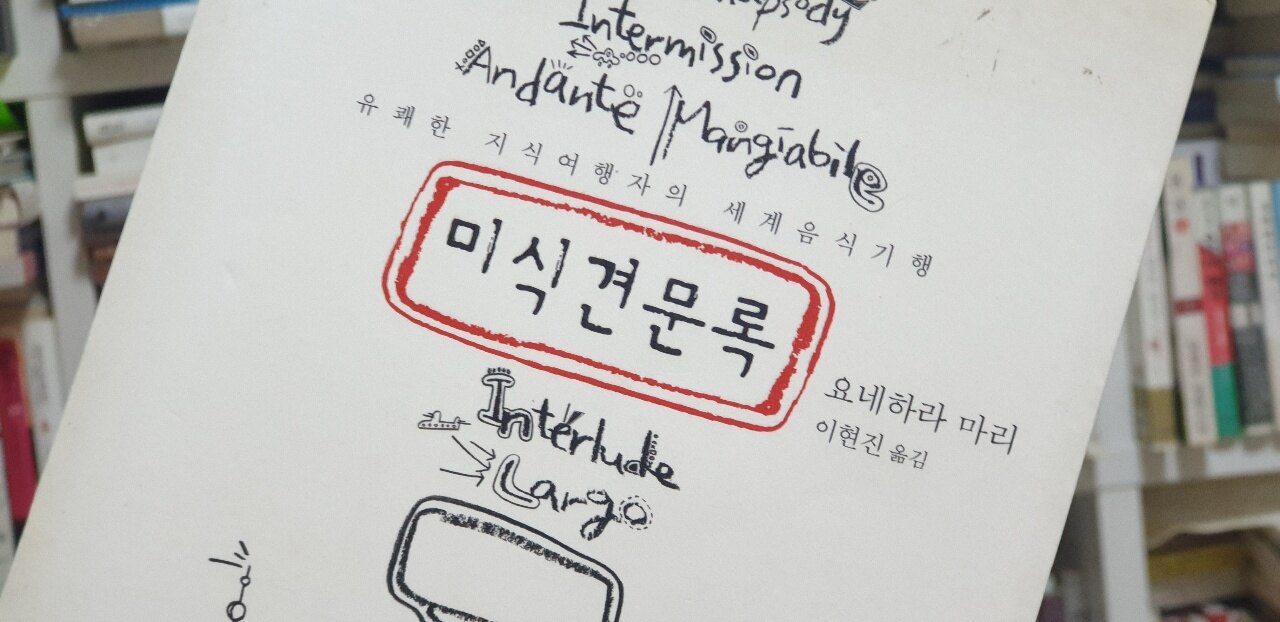 Rhapsody
Intermission
Andante Mangiabile
유쾌한 지식여행자의 세계음식기행
미식견문록
요네하라 마리
이현진 옮김
Interlude
Largo